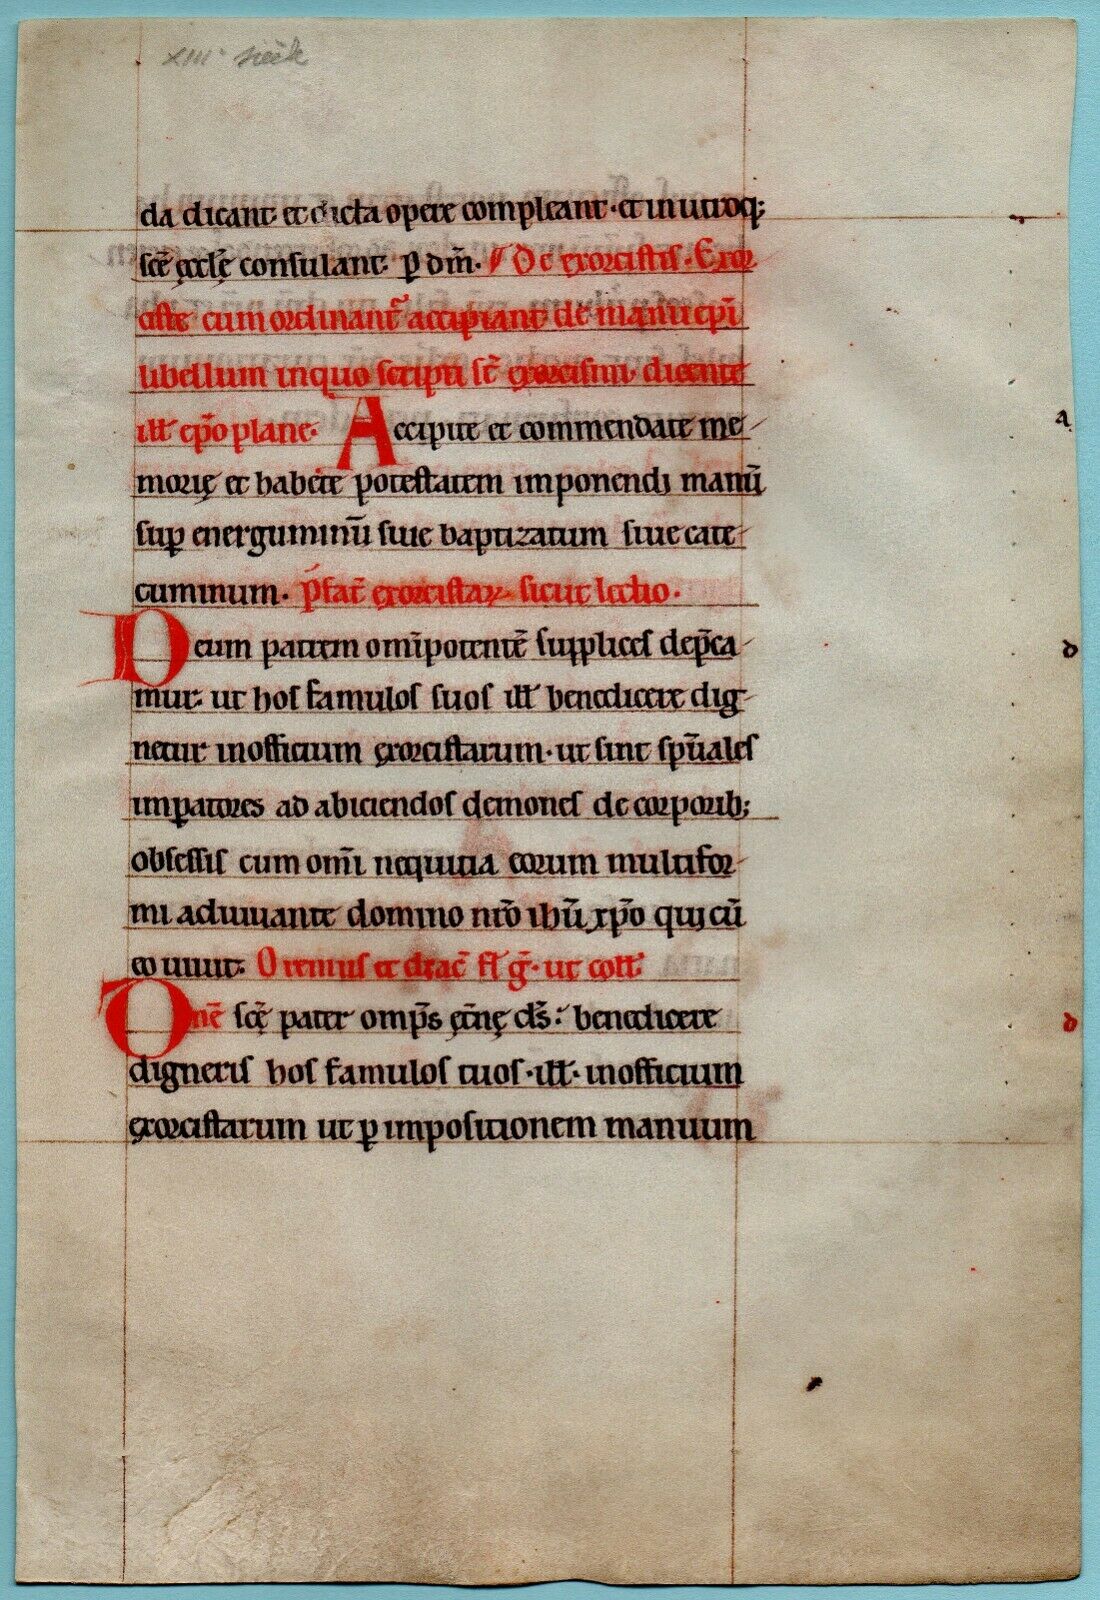 XIIIe siècle
da dicant et dicta opere compleant · et in utroq;
scē ęcclę̄ consulant. p̲ dm̄. De exorcistis. Exor
ciste cum ordinant᷑ accipiant de manu ep̄i
libellum inquo scripti st̄ exorcismi. dicente
ill̄ ep̄o plane. Accipite et commendate me
a
morię et habete potestatem imponendi manū
sup̲ energuminū siue baptizatum siue cate
cuminum. p̄fat̄ exorcistaꝝ sicut lectio.
Deum patrem omīpotentē supplices dep̄ca
d
mur. ut hos famulos suos ill̄ benedicere dig
netur inofficium exorcistarum. ut sint sp̄uales
imp̲atores ad abiciendos demones de corporib;
obsessis cum omī nequitia eorum multifor
mi adiuuante domino nr̄o ihū xp̄o qui cū
eo uiuit. Oremus et diac̄ fl̄ ḡ. ut coll̄
Dn̄e scē pater omp̄s ęt̄nę ds̄. benedicere
d
digneris hos famulos tuos. ill̄. inofficium
exorcistarum ut p̲ impositionem manuum